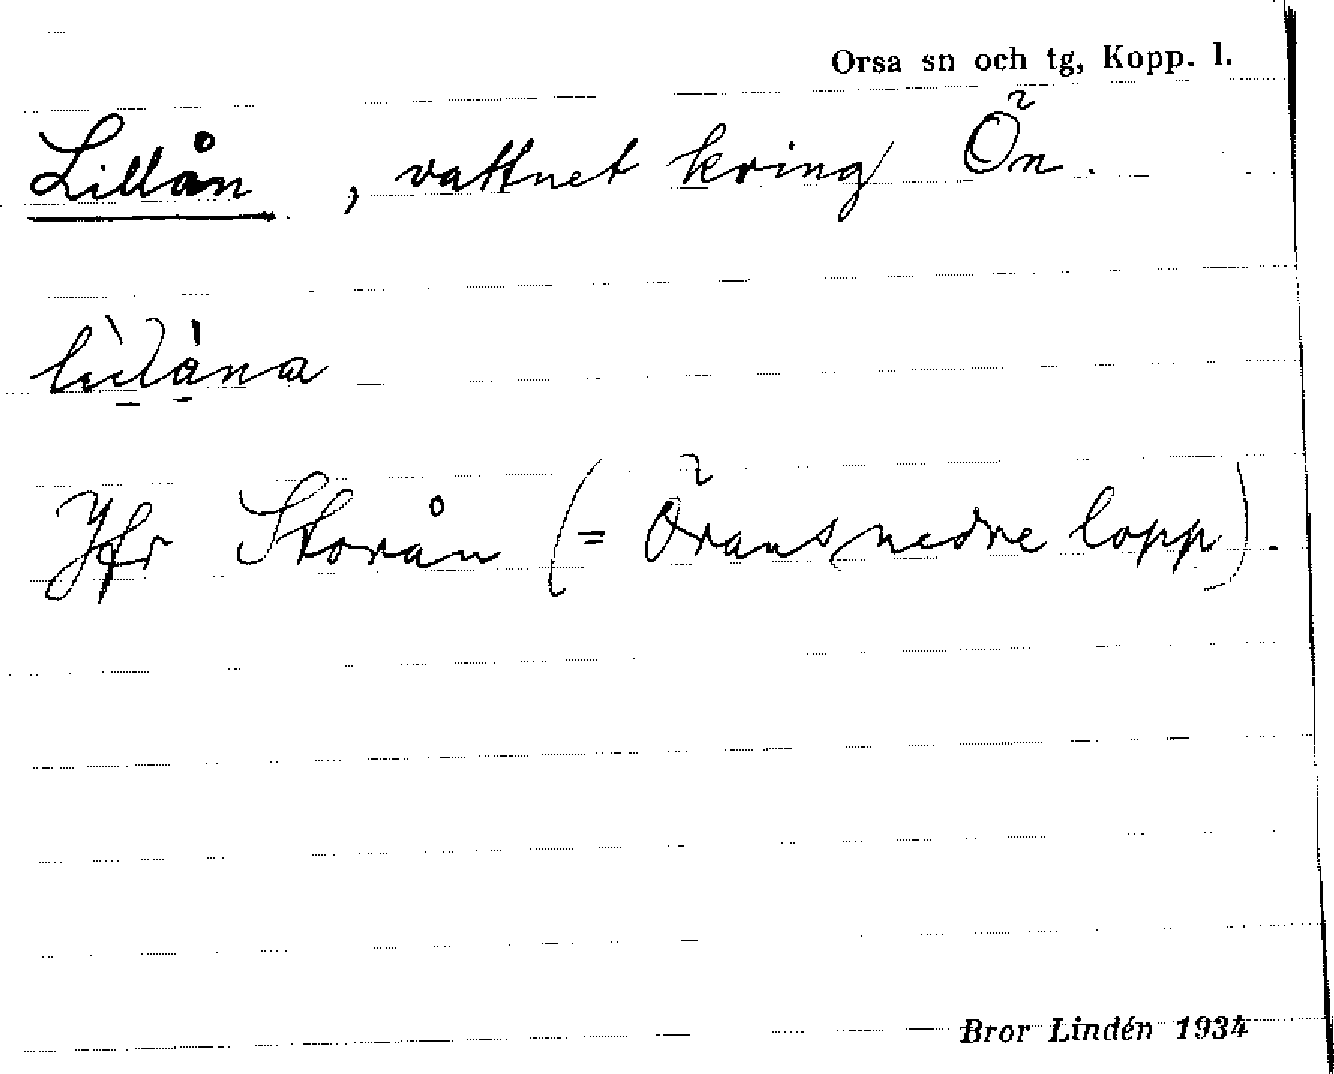 Orsa sn och tg, Kopp. l.
Lillån, vattnet kring Ön.
Jfr Storån (= Örans nedre lopp).
Bror Lindén 1934